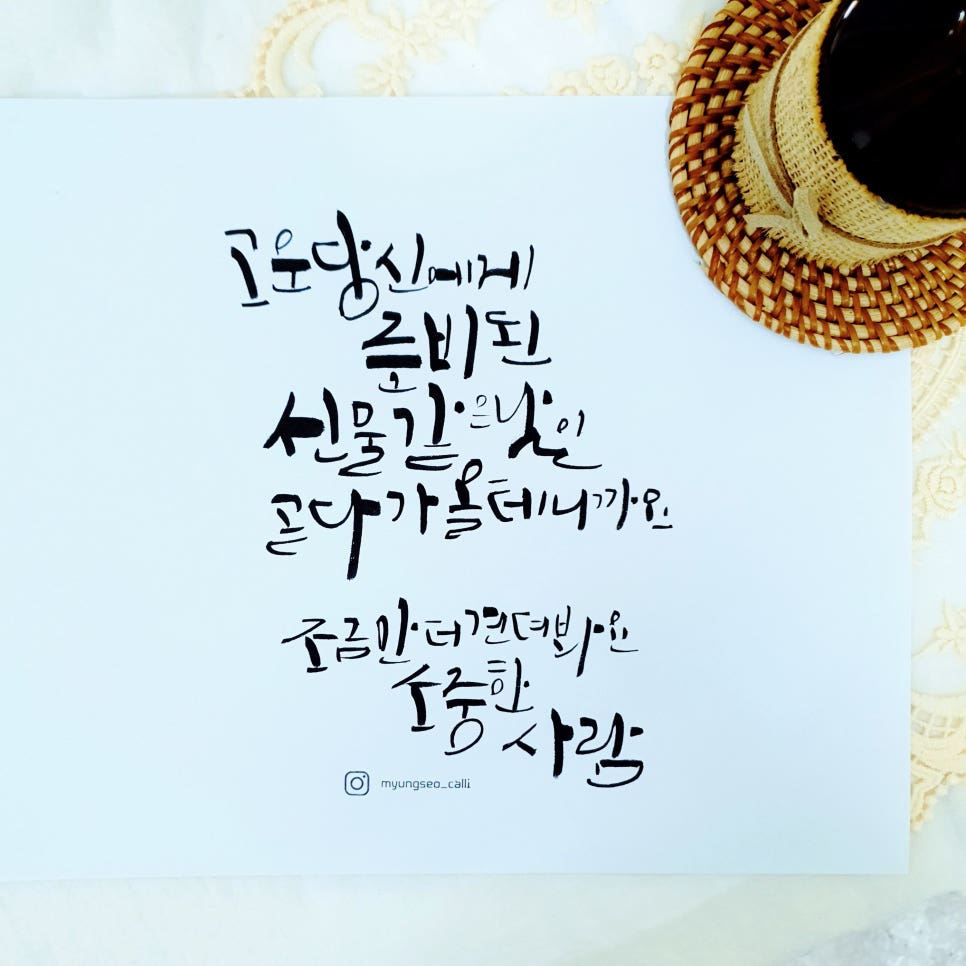 고운 당신에게
준비된
선물같은 날이
곧 다가올테니까요
조금만 더 견뎌봐요
소중한
사람
myungseo_calli